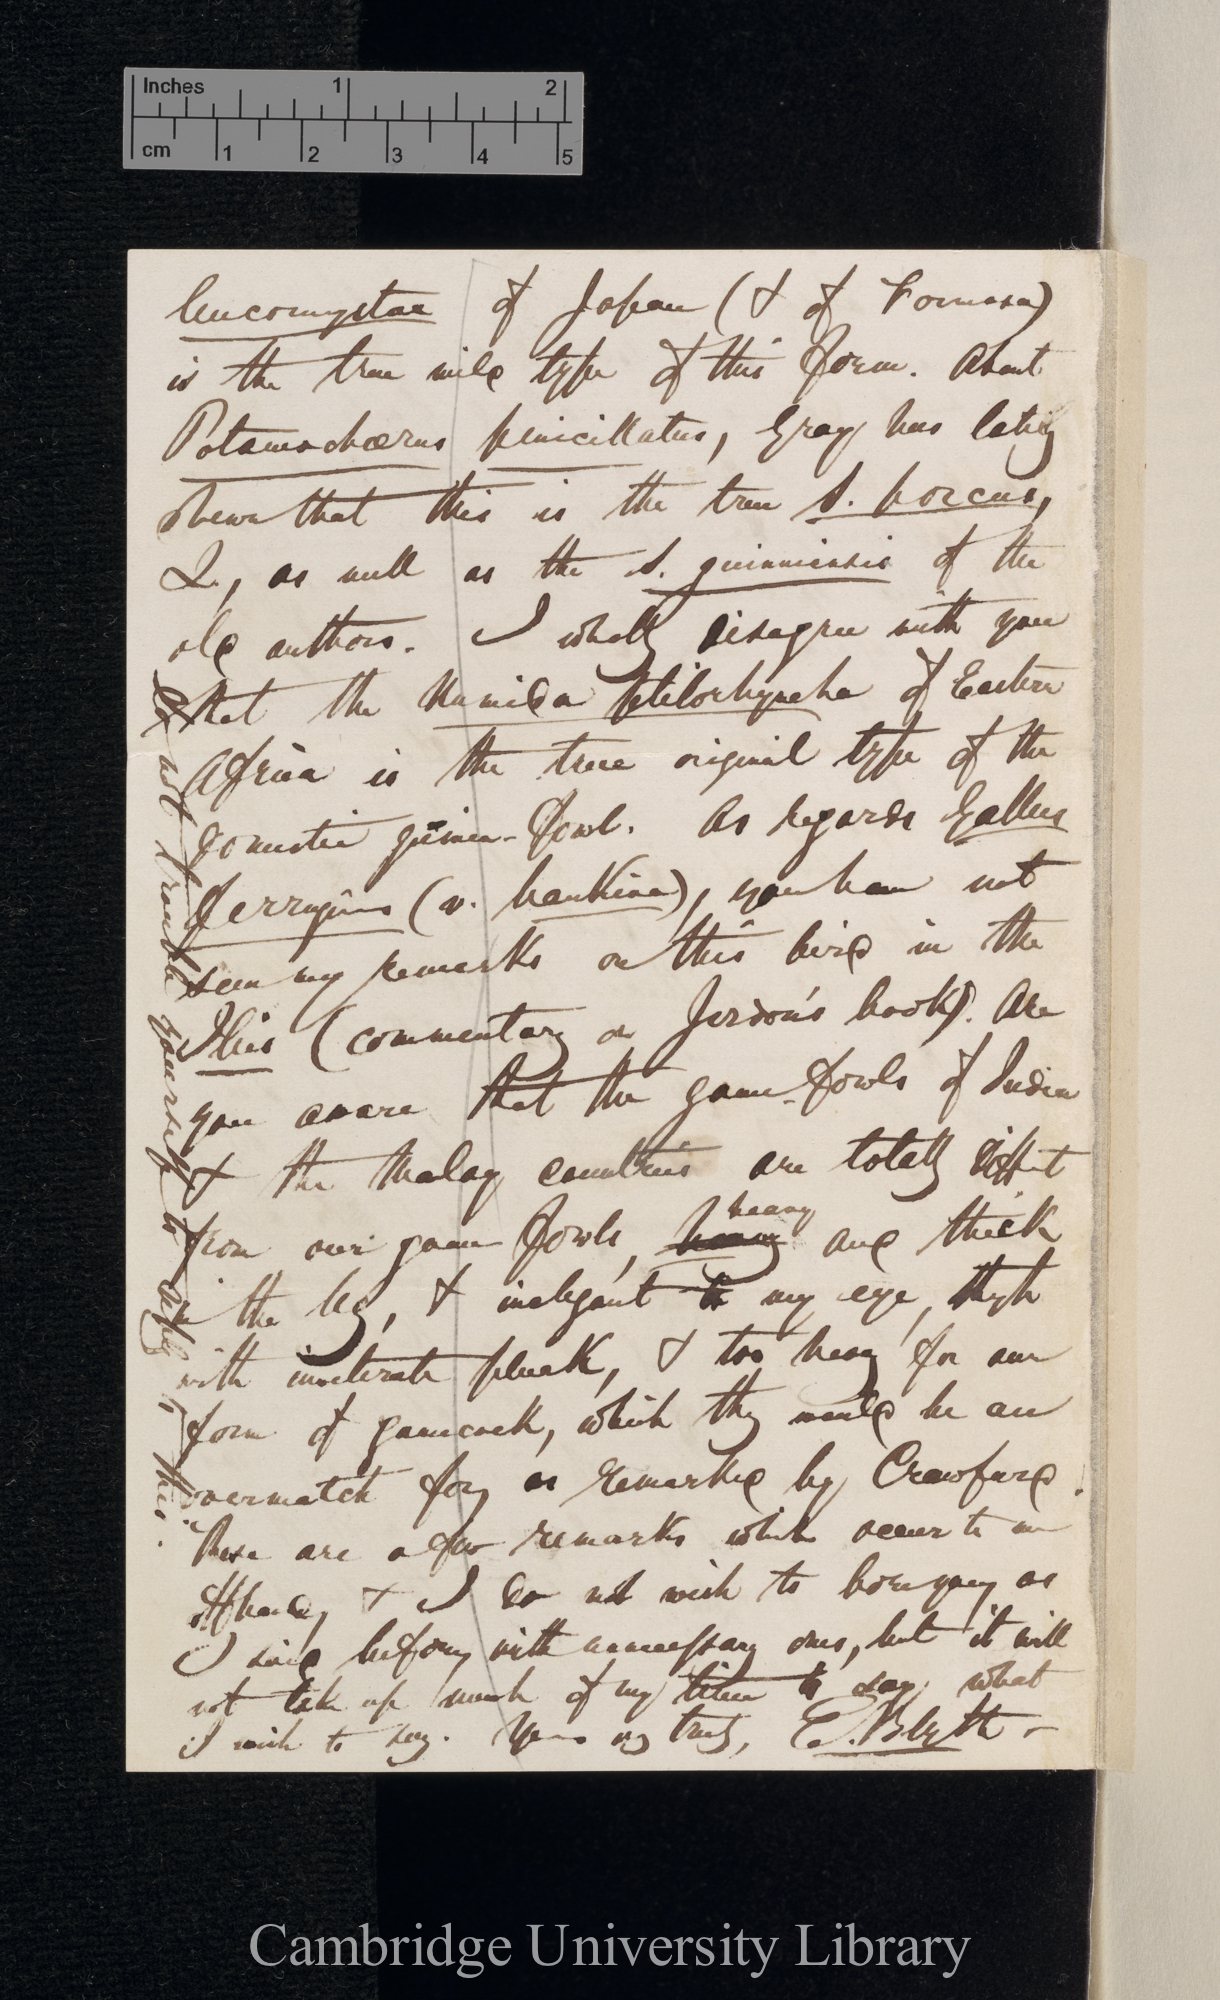 Inches 1 2
cm 1 2 3 4 5
leucomystax of Japan (& of Formosa)
is the true wild type of this form. About
Potamochœrus penicillatus, Gray has lately
shewn that this is the true S. porcus,
L., as well as the S. guinniensis of the
old authors. I wholly disagree with you
that the Numida ptilorhyncha of Eastern
Africa is the true original type of the
domestic guinea-fowl. As regards Gallus
ferrugineus (v. bankiva), you have not
seen my remarks on this bird in the
Ibis (commentary on Jerdon's book). Are
you aware that the game-fowls of India
& the Malay countries are totally different
from our game fowls, heavy and thick
in the leg, & inelegant to my eye, though
with inveterate pluck, & too heavy for our
form of gamecock, which they would be an
overmatch for, as remarked by Crawfurd.
These are a few remarks which occur to me
offhand, & I do not wish to bore you, as
I said before, with unnecessary ones, but it will
not take up much of my time to say what
I wish to say. Yours very truly, E. Blyth
Do not trouble yourself to reply to this.
Cambridge University Library